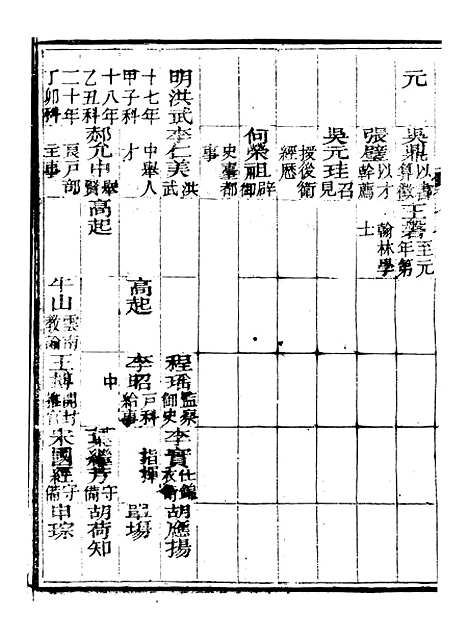 元
吳鼎 以書算徵 王磐 至元年第翰林學士
張璧 以才幹薦
吳元珪 召見授後衛經歷
何榮祖 辟御史臺都事
明洪武 李仁美 洪武
程瑶 監察御史 李實 仕錦衣衛 胡應揚
十七年甲子科 中舉人 才
高起
李昭 戶科給事中 指揮 單場
十八年乙丑科 郝允中 舉賢 高起
葉繼芳 守備 胡荷知
二十年丁卯科 戶部主事
牛山 雲南教諭 王博 開封推官 宋國經 守備 申琮